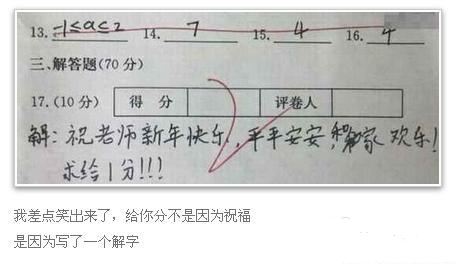 13. -1≤a≤2 14. 7 15. 4 16. 4
三、解答题(70分)
17.(10分) 得 分 评卷人
解:祝老师新年快乐,平平安安,家欢乐!
求给1分!!!
我差点笑出来了，给你分不是因为祝福
是因为写了一个解字